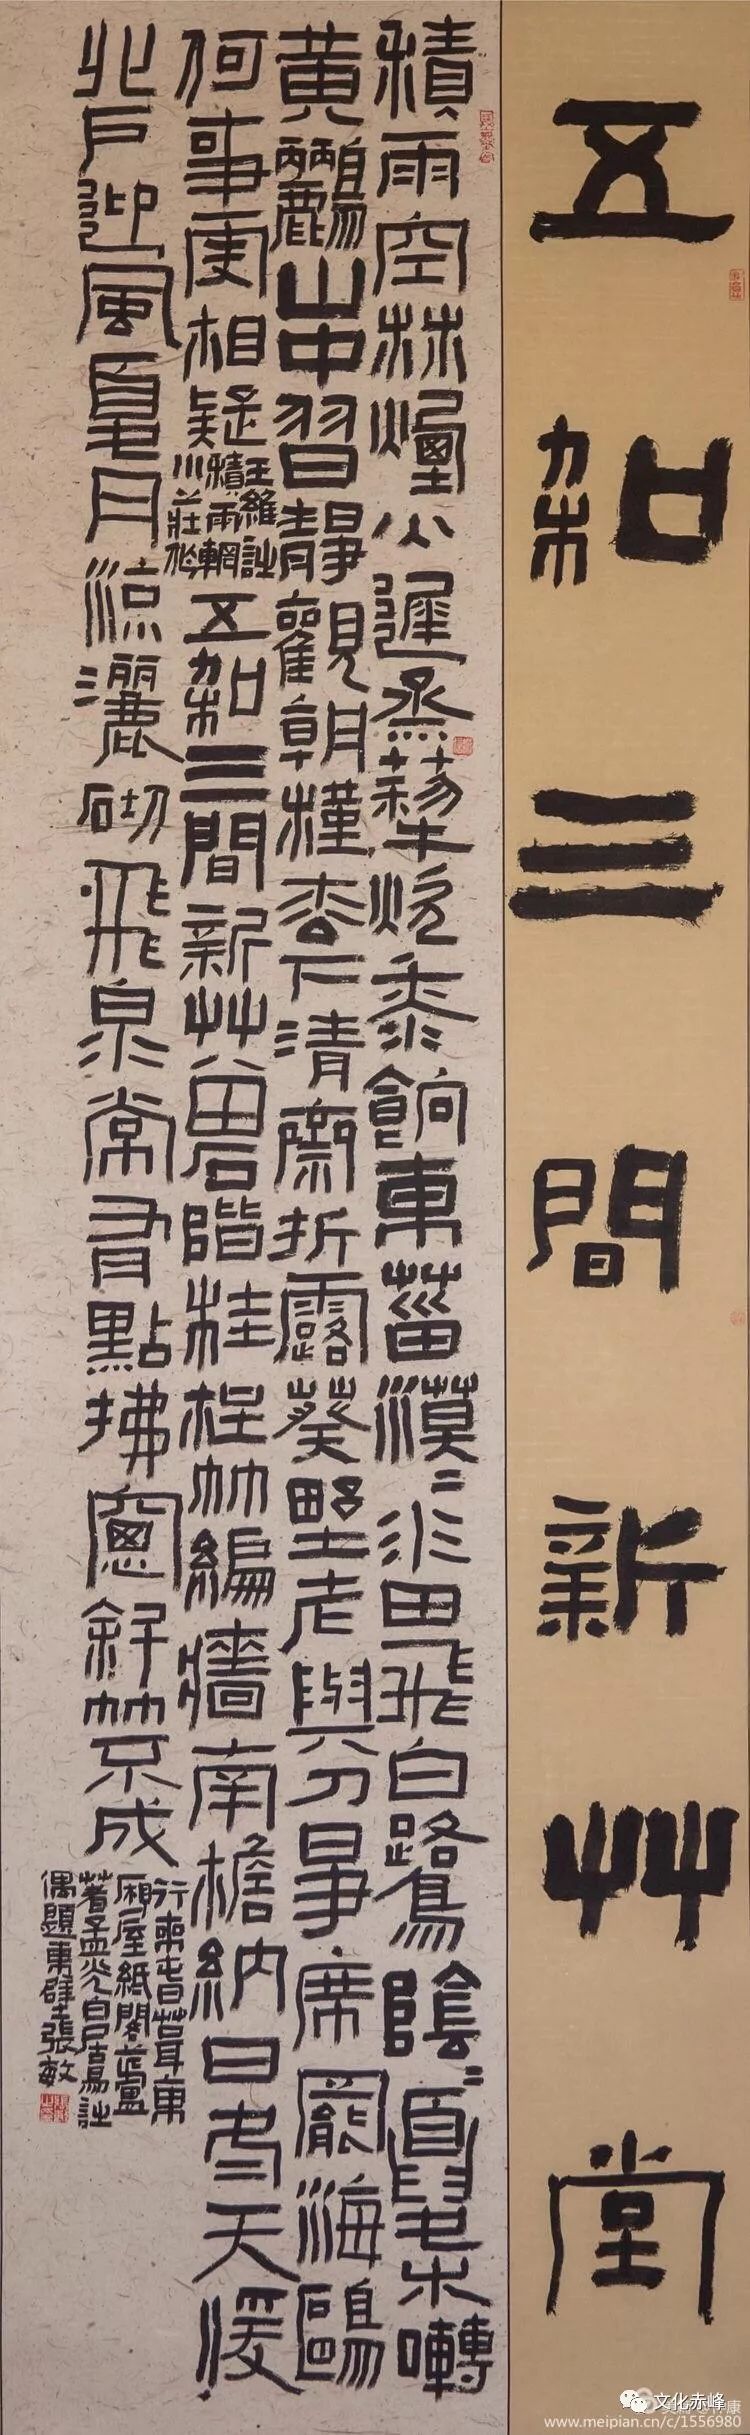 五架三間新艸堂
積雨空林煙火遲蒸藜炊黍餉東菑漠〻水田飛白鷺陰〻夏木囀
黄鸝山中習靜觀朝槿松下清齋折露葵野老與人爭席罷海鷗
何事更相疑
王維詩
積雨輞
川莊作
五架三間新艸堂石階桂柱竹編牆南檐納日冬天暖
北戶迎風夏月涼灑砌飛泉常有點拂窗斜竹不成
行來春葺東
厢屋紙閣蘆簾
著孟光白居易詩
偶題東壁張敏
文化赤峰
www.meipian.cn/c/1556980